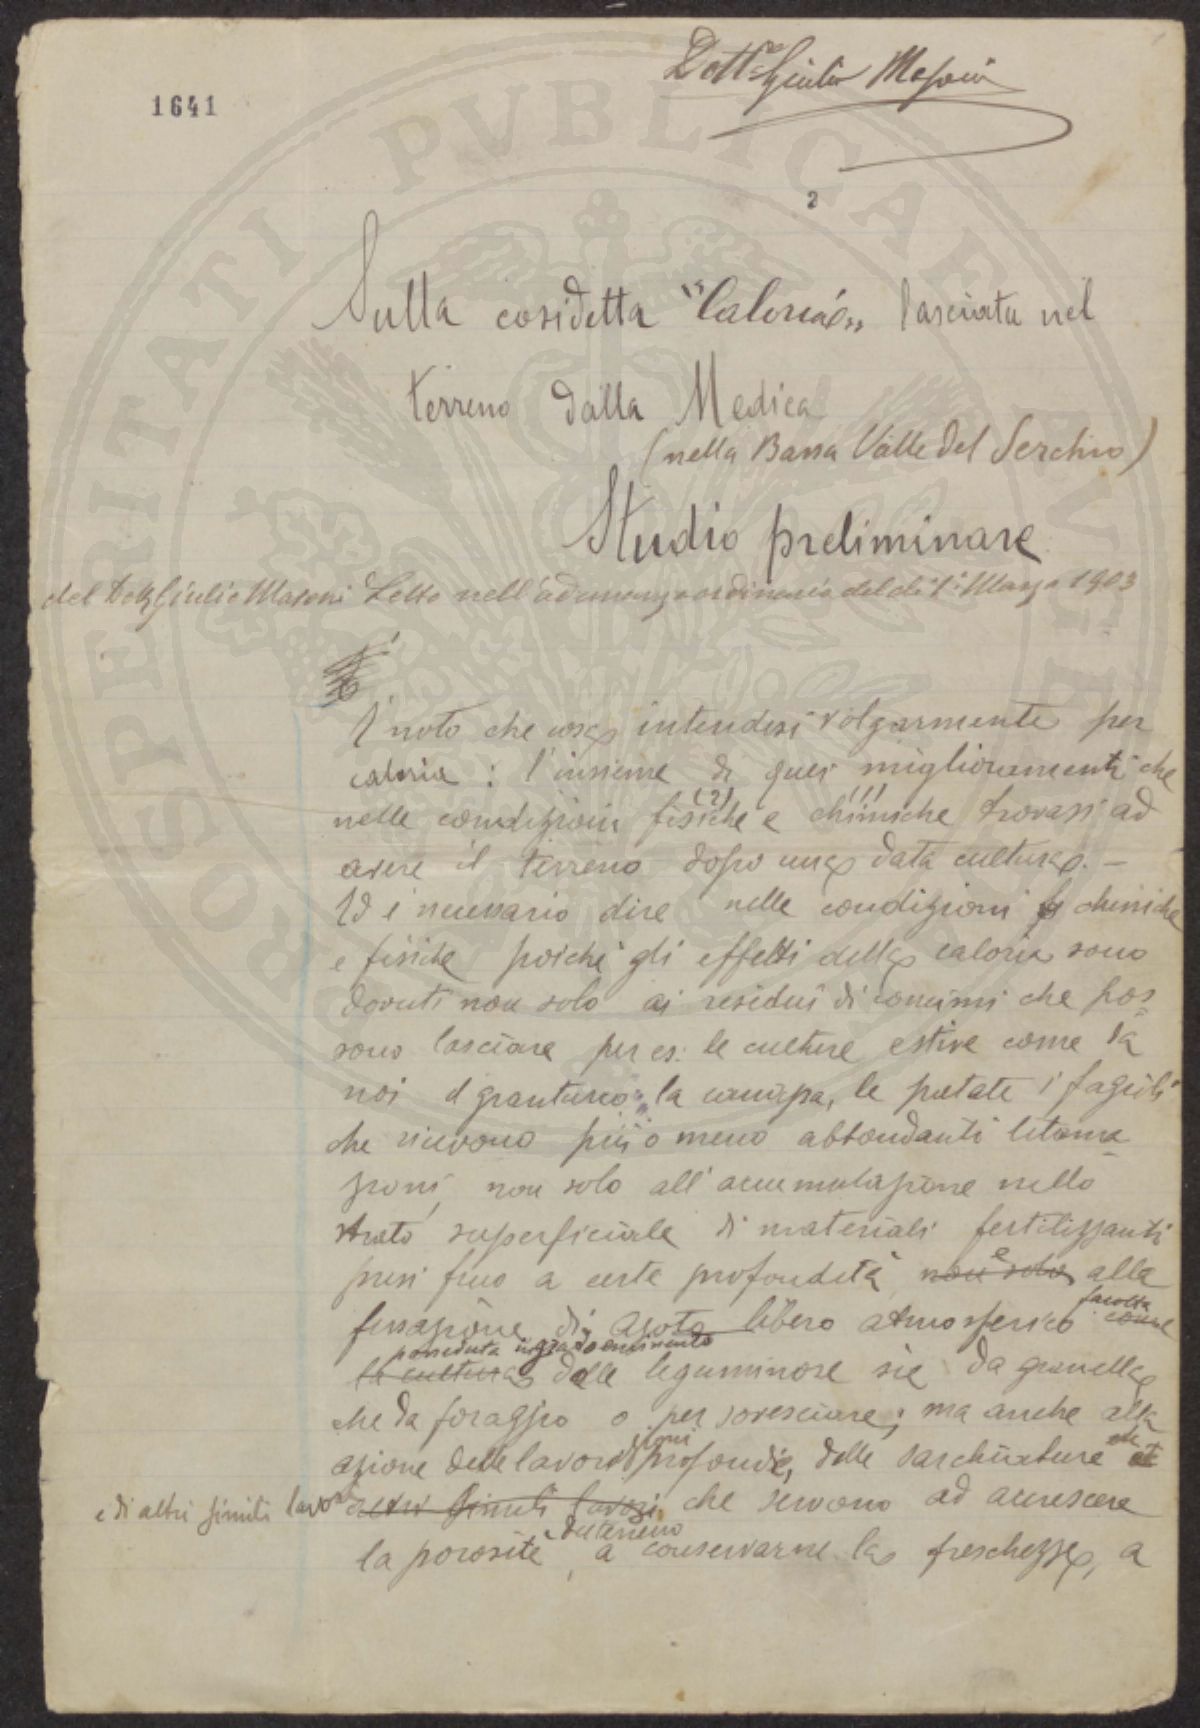 Dott.re Giulio Masoni
1641
2
Sulla cosidetta "Caloria" lasciata nel
terreno dalla Medica
(nella Bassa Valle del Serchio)
Studio preliminare
del Dott. Giulio Masoni Letto nell'adunanza ordinaria del dì 1º Marzo 1903
È noto che cosa intendesi volgarmente per
caloria: l'insieme di quei miglioramenti che
nelle condizioni fisiche (2) e chimiche (1) trovasi ad
avere il terreno dopo una data cultura. –
Ed è necessario dire nelle condizioni chimiche
e fisiche poichè gli effetti della caloria sono
dovuti non solo ai residui di concimi che pos=
sono lasciare per es: le culture estive come da
noi il granturco, la canapa, le patate i fagioli
che ricevono più o meno abbondanti letama=
zioni, non solo all'accumulazione nello
strato superficiale di materiali fertilizzanti
presi fino a certe profondità non solo e alla
fissazione di azoto libero atmosferico come facoltà
la cultura posseduta in grado eminente dalle leguminose sie da granella
che da foraggio o per sovesciare; ma anche alla
azione delle lavorazioni profonde, delle sarchiature
e di altri simili lavori altri simili lavori che servono ad accrescere
la porosità del terreno, a conservarne la freschezza, a